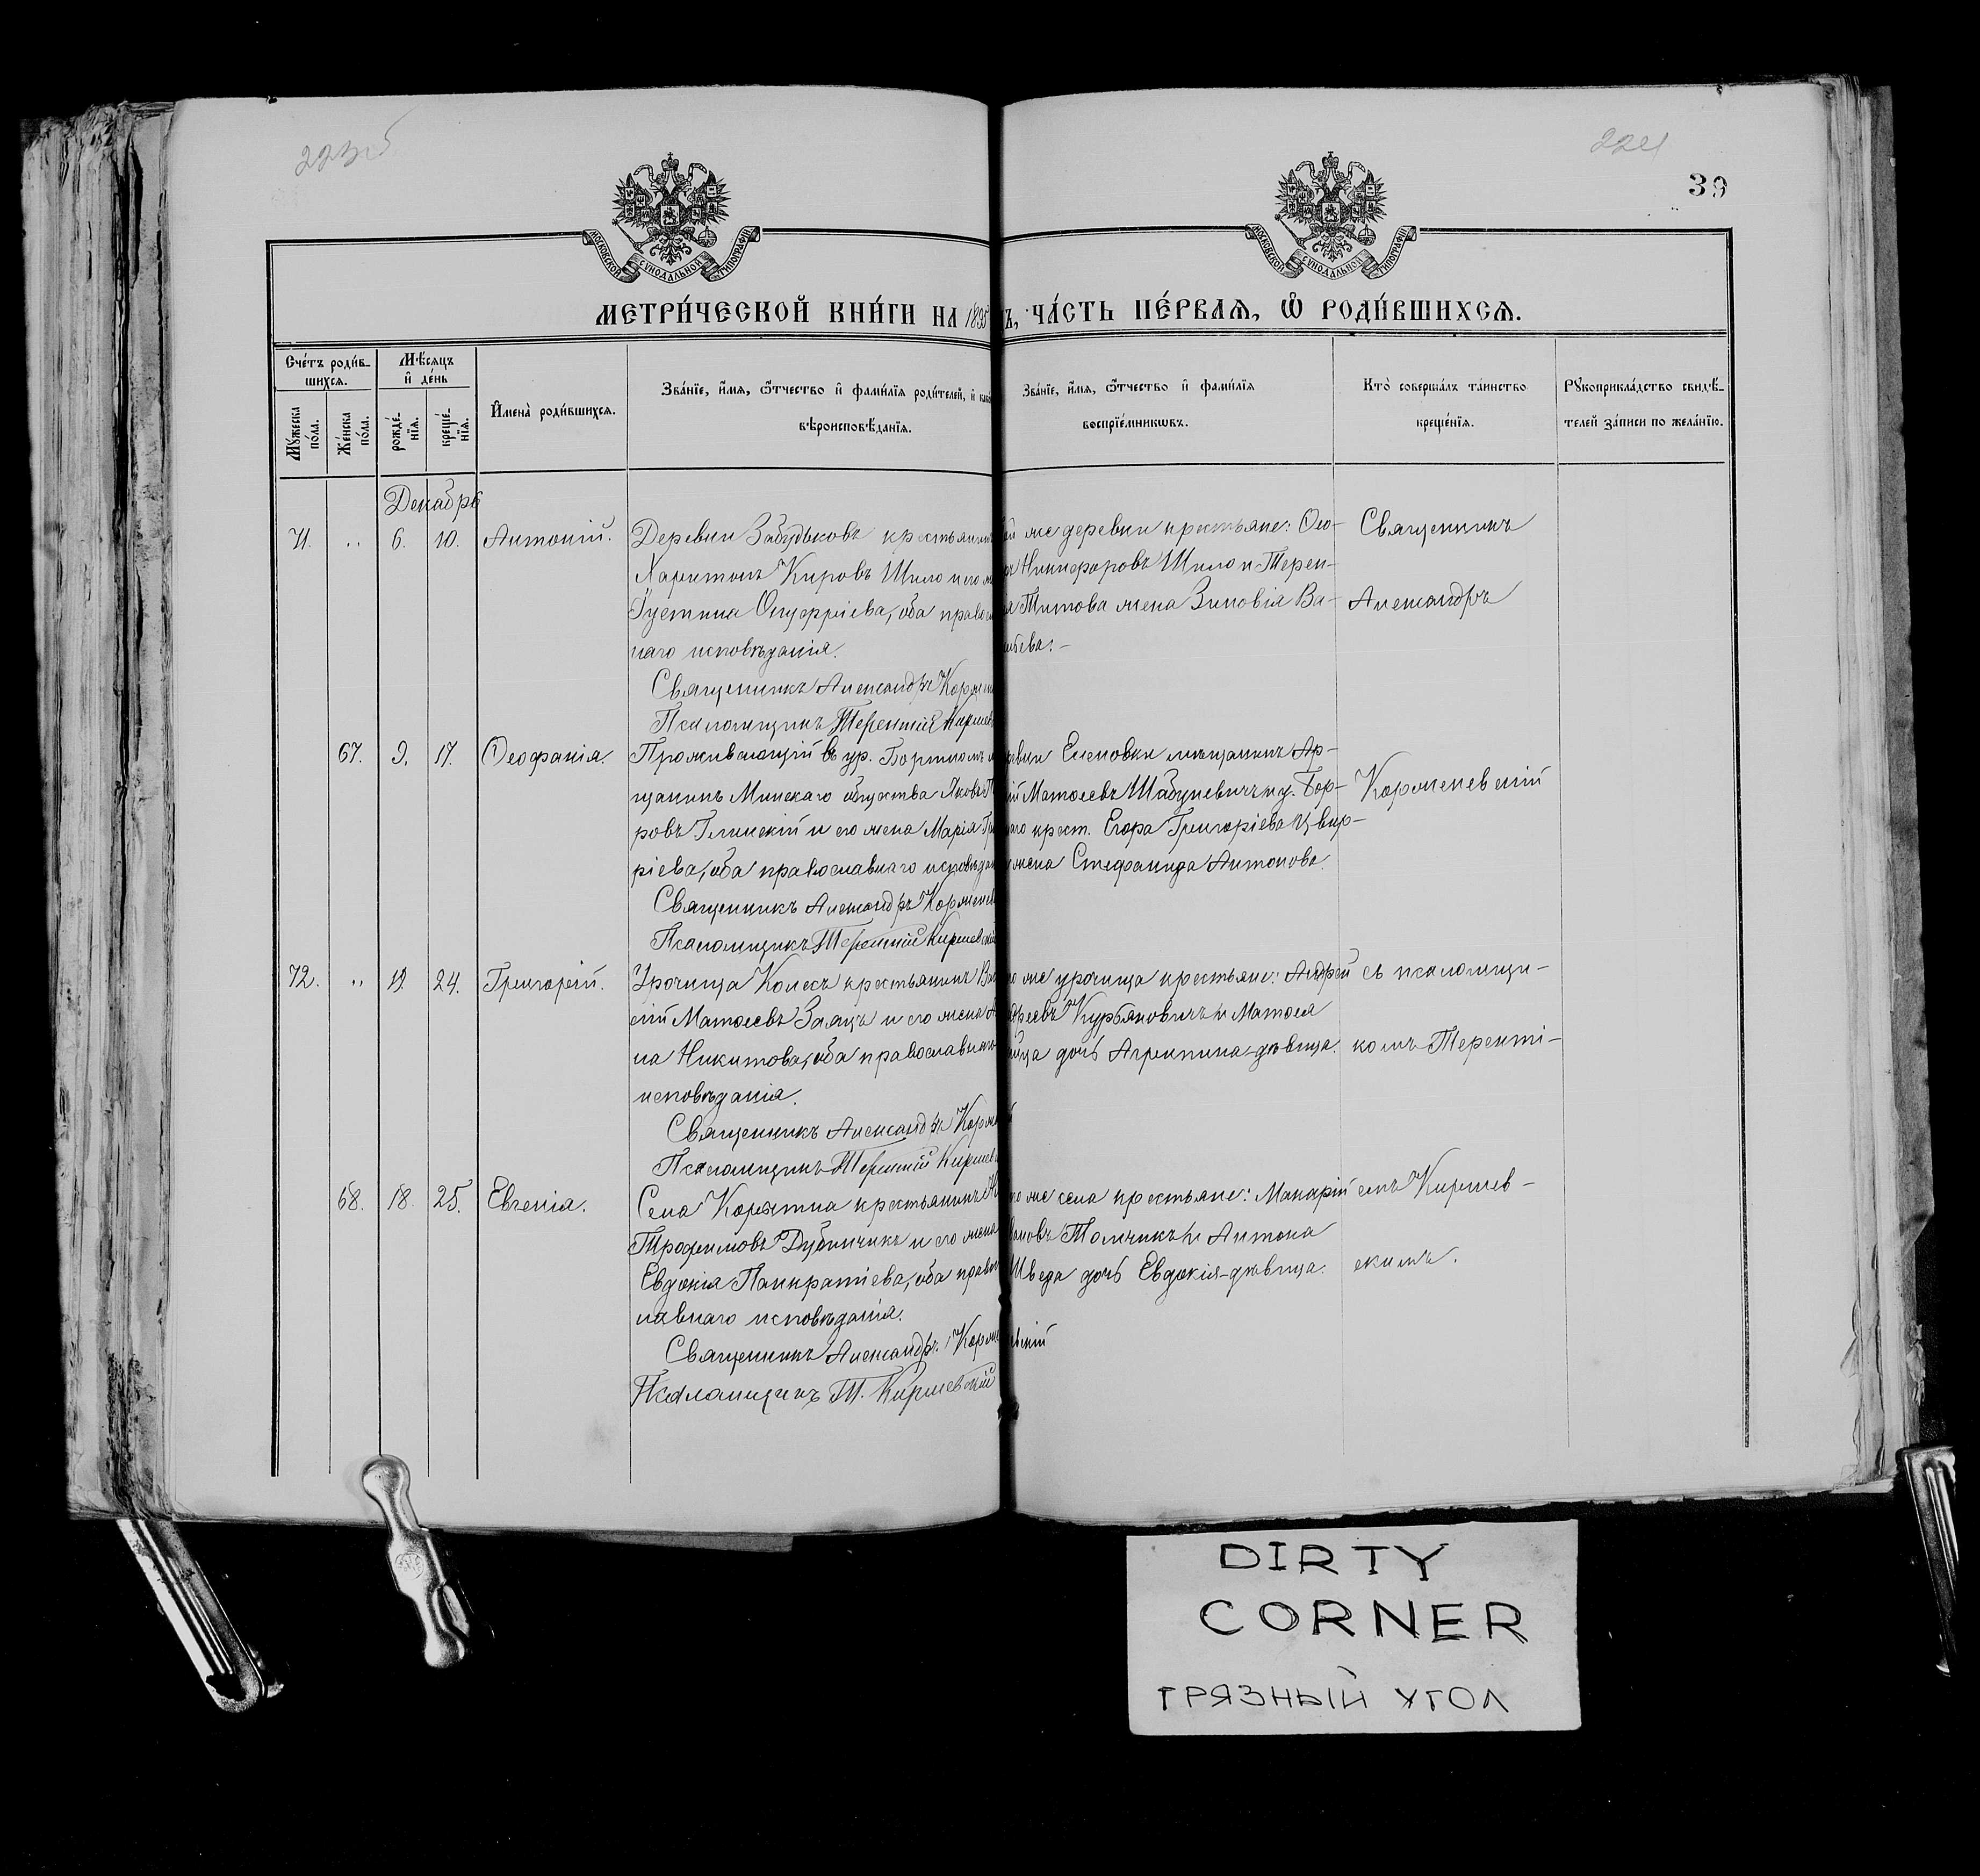 223об
224
39
МОСКОВСКОЙ СѴНОДАЛЬНОЙ ТИПОГРАФІИ
МОСКОВСКОЙ СѴНОДАЛЬНОЙ ТИПОГРАФІИ
МЕТРИ́ЧЕСКОЙ КНИ́ГИ НА 1895 Ъ, ЧА́СТЬ ПЕ́РВАѦ, Ѿ РОДИ́ВШИХСѦ.
Сче́тъ роди́в-
шихсѧ.
Мѣ́сѧцъ
и҆ де́нь
Мꙋ́жеска
по́ла.
Же́нска
по́ла.
рожде́-
нїѧ.
креще́-
нїѧ.
И҆мена̀ роди́вшихсѧ.
Зва́нїе, и҆́мѧ, ѻ҆́тчество и҆ фами́лїѧ роди́телей, и҆
вѣроисповѣ́данїѧ.
Зва́нїе, и҆́мѧ, ѻ҆́тчество и҆ фами́лїѧ
воспрїе́мникѡвъ.
Кто̀ соверша́лъ та́инство
креще́нїѧ.
Рꙋкоприкла́дство свидѣ́-
телей за́писи по жела́нїю.
Декабрь
71. „ 6. 10. Антоній.
Деревни Забудьковъ крестьянинъ
Харитонъ Кировъ Шило и его
Іустина Онуфріева, оба
наго исповѣданія.
Священникъ Александръ
Псаломщикъ Терентій
же деревни крестьяне: Ѳео-
Никифоровъ Шило и Терен-
Титова жена Зиновія Ва-
Священникъ
Александръ
67. 9. 17. Ѳеофанія.
Проживающій въ ур. Бортномъ
щанинъ Минскаго общества Яковъ
ровъ Глинскій и его жена Марія
ріева, оба православнаго
Священникъ Александръ
Псаломщикъ Терентій Киршевскій
Еленовки мѣщанинъ Ар-
Матѳеевъ Шабуневичъ и у. Бор-
крест. Егора Григоріева Цвир-
жена Стефанида Антонова.
Корженевскій
72. „ 19. 24. Григорій.
Урочища Колесъ крестьянинъ
сій Матѳеевъ Заяцъ и его жена
на Никитова, оба
исповѣданія.
Священникъ Александръ
Псаломщикъ Терентій
же урочища крестьяне: Андрей
Курбяновичъ и Матѳея
дочь Агрипина-дѣвица.
съ псаломщи-
комъ Теренті-
68. 18. 25. Евгенія.
Села крестьянинъ
Трофимовъ Дубинчикъ и его жена
Евдокія Панкратіева, оба
славнаго исповѣданія.
Священникъ Александръ Корженевскій
Псаломщикъ Т. Киршевскій
же села крестьяне: Макарій
Томчикъ и Антона
Шведа дочь Евдокія-дѣвица.
емъ Киршев-
скимъ.
DIRTY
CORNER
ГРЯЗНЫЙ УГОЛ